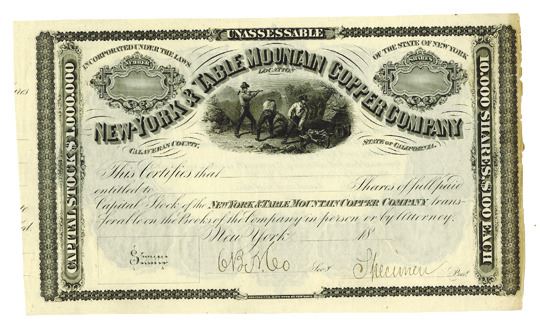 UNASSESSABLE
INCORPORATED UNDER THE LAWS OF THE STATE OF NEW YORK
SHARES
NEW-YORK & TABLE MOUNTAIN COPPER COMPANY
LOCATION
CALAVERAS COUNTY, STATE OF CALIFORNIA.
CAPITAL STOCK $1,000,000
10,000 SHARES, $100 EACH
This Certifies that
entitled to Shares of full paid
Capital Stock of the NEW YORK & TABLE MOUNTAIN COPPER COMPANY trans-
ferable on the Books of the Company in person or by Attorney.
New York 18
Secy Specimen Prest